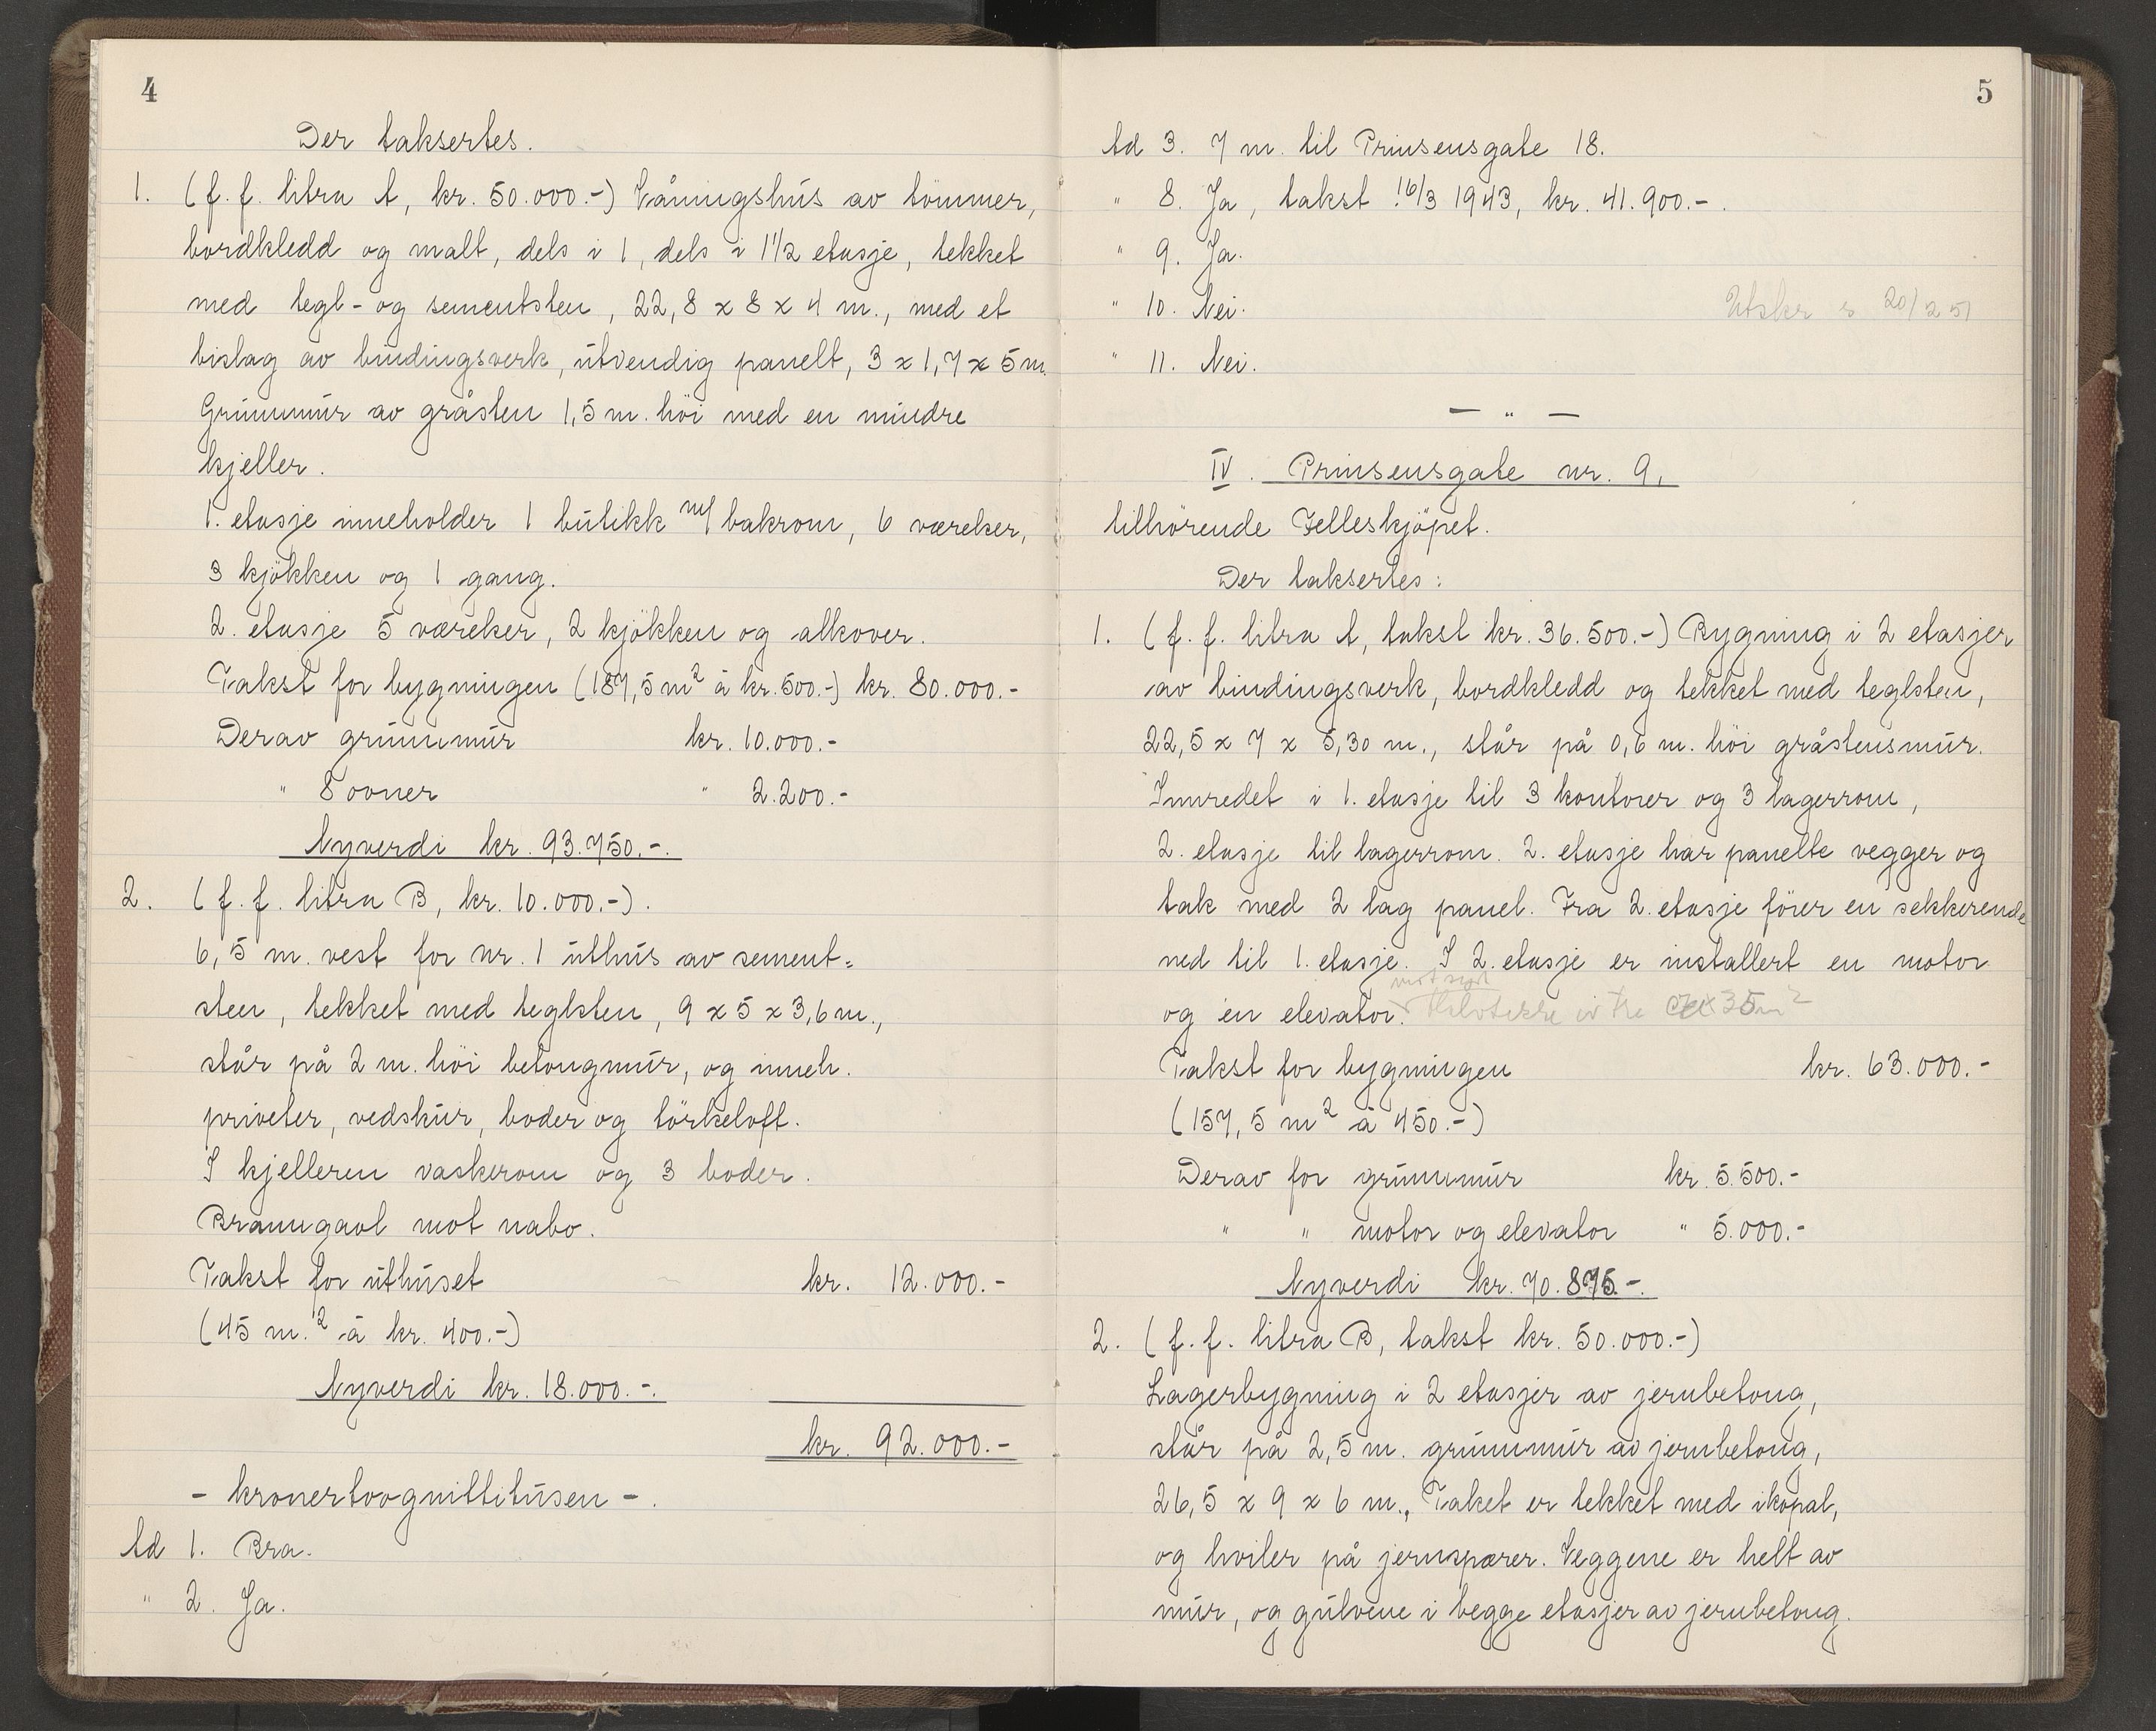 4
Der taksertes.
1. (f. f. litra A, kr. 50.000.-) Våningshus av tömmer,
bordkledd og malt, dels i 1, dels i 1 1/2 etasje, tekket
med tegl- og sementsten, 22,8 x 8 x 4 m., med et
bislag av bindingsverk, utvendig panelt, 3 x 1,7 x 5 m.
Grunnmur av gråsten 1,5 m. höi med en mindre
kjeller.
1. etasje inneholder 1 butikk m/ bakrom, 6 værelser,
3 kjökken og 1 gang.
2. etasje 5 værelser, 2 kjökken og alkover.
Takst for bygningen (187,5 m² à kr. 500.-) kr. 80.000.-
Derav grunnmur kr. 10.000.-
" 8 ovner " 2.200.-
Nyverdi kr. 93.750.-.
2. (f. f. litra B, kr. 10.000.-).
6,5 m. vest for nr. 1 uthus av sement=
sten, tekket med teglsten, 9 x 5 x 3,6 m.,
står på 2 m. höi betongmur, og inneh.
priveter, vedskur, boder og törkeloft.
I kjelleren vaskerom og 3 boder.
Branngavl mot nabo.
Takst for uthuset kr. 12.000.-
(45 m.² à kr. 400.-)
Nyverdi kr. 18.000.-.
kr. 92.000.-
- kronertoognittitusen -.
Ad 1. Bra.
" 2. Ja.
5
Ad 3. 7 m. til Prinsensgate 18.
" 8. Ja, takst 16/3 1943, kr. 41.900.-.
" 9. Ja.
" 10. Nei. Utskr 20/2 51
" 11. Nei.
— " —
IV. Prinsensgate nr. 9,
tilhörende Felleskjöpet.
Der taksertes:
1. (f. f. litra A, takst kr. 36.500.-) Bygning i 2 etasjer
av bindingsverk, bordkledd og tekket med teglsten,
22,5 x 7 x 5,30 m., står på 0,6 m. höi gråstensmur.
Innredet i 1. etasje til 3 kontorer og 3 lagerrom,
2. etasje til lagerrom. 2. etasje har panelte vegger og
tak med 2 lag panel. Fra 2. etasje förer en sekkerende
ned til 1. etasje. I 2. etasje er installert en motor
og en elevator. 35 m²
Takst for bygningen kr. 63.000.-
(157,5 m² à 450.-)
Derav for grunnmur kr. 5.500.-
" " motor og elevator " 5.000.-
Nyverdi kr. 70.875.-.
2. (f. f. litra B, takst kr. 50.000.-)
Lagerbygning i 2 etasjer av jernbetong,
står på 2,5 m. grunnmur av jernbetong,
26,5 x 9 x 6 m., Taket er tekket med ikopal,
og hviler på jernspærer. Veggene er helt av
mur, og gulvene i begge etasjer av jernbetong.